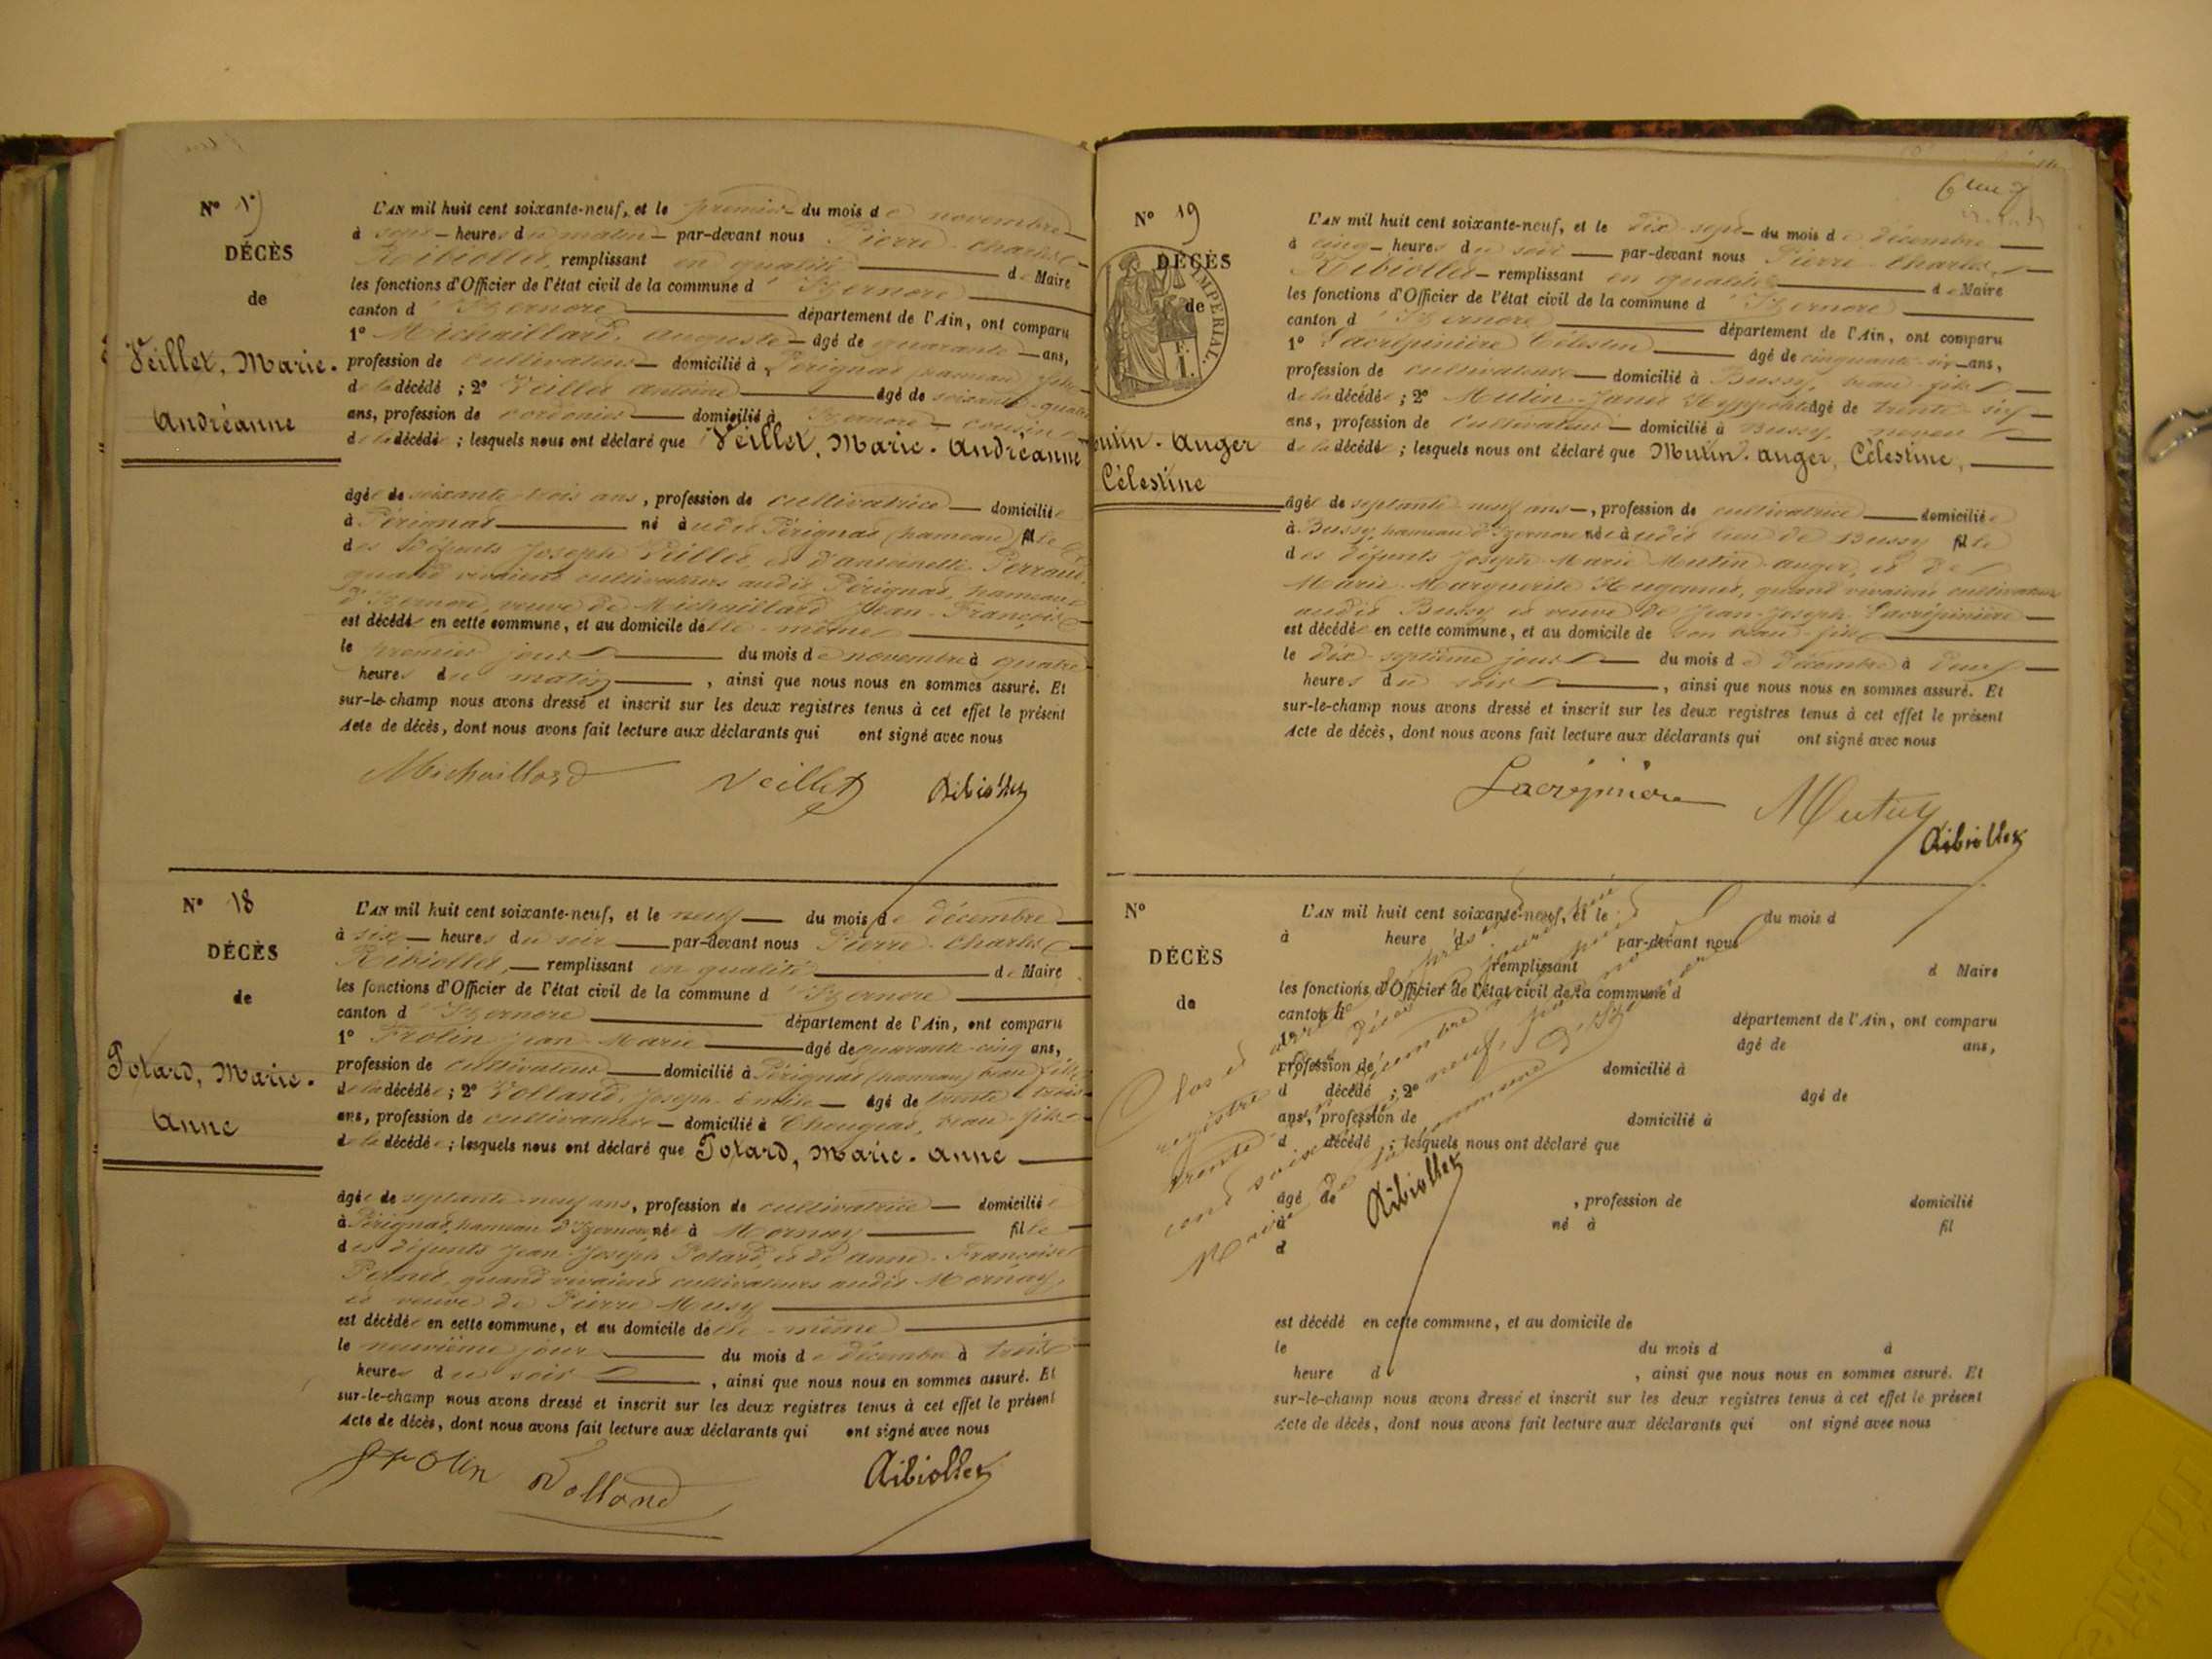 N° 17
DÉCÈS
de
Veillet, Marie.
Andréanne
L'AN mil huit cent soixante-neuf, et le premier du mois de novembre
à sept heures du matin par-devant nous Pierre Charles
Ribiollet, remplissant en qualité de Maire
les fonctions d'Officier de l'état civil de la commune d'Izernore
canton d'Izernore département de l'Ain, ont comparu
1° Michaillard, Auguste âgé de quarante ans,
profession de cultivateur domicilié à Pérignat hameau fils
de la décédé ; 2° Veillet Antoine âgé de soixante-quatre
ans, profession de cordonier domicilié à Izernore cousin
de la décédé ; lesquels nous ont déclaré que Veillet, Marie. Andréanne
âgée de soixante trois ans, profession de cultivatrice domiciliée
à Pérignat né audit Pérignat (hameau) fille
des défunts Joseph Veillet, et d'antoinette Perraud,
quand vivaient cultivateurs audit Pérignat, hameau
d'Izernore, veuve de Michaillard Jean-François
est décédée en cette commune, et au domicile d'elle-même
le premier jour du mois de novembre à quatre
heures du matin, ainsi que nous nous en sommes assuré. Et
sur-le-champ nous avons dressé et inscrit sur les deux registres tenus à cet effet le présent
Acte de décès, dont nous avons fait lecture aux déclarants qui ont signé avec nous
Michaillard Veillet Ribiollet
N° 18
DÉCÈS
de
Potard, Marie.
Anne
L'AN mil huit cent soixante-neuf, et le neuf du mois de décembre
à six heures du soir par-devant nous Pierre Charles
Ribiollet, remplissant en qualité de Maire
les fonctions d'Officier de l'état civil de la commune d'Izernore
canton d'Izernore département de l'Ain, ont comparu
1° Frolin Jean Marie âgé de quarante-cinq ans,
profession de cultivateur domicilié à Pérignat (hameau) beau fils
de la décédée ; 2° Volland, Joseph Emile âgé de trente trois
ans, profession de cultivateur domicilié à Chougeat, beau-fils
de la décédée ; lesquels nous ont déclaré que Potard, Marie. Anne
âgée de septante-neuf ans, profession de cultivatrice domiciliée
à Pérignat, hameau d'Izernore née à Mornay fille
des défunts Jean-Joseph Potard, et de anne-Françoise
Pernet, quand vivaient cultivateurs audit Mornay,
et veuve de Pierre Musy
est décédée en cette commune, et au domicile d'elle-même
le neuvième jour du mois de décembre à trois
heures du soir, ainsi que nous nous en sommes assuré. Et
sur-le-champ nous avons dressé et inscrit sur les deux registres tenus à cet effet le présent
Acte de décès, dont nous avons fait lecture aux déclarants qui ont signé avec nous
Frolin Volland Ribiollet
N° 19
DÉCÈS
de
IMPERIAL.
utin. Auger
Célestine
L'AN mil huit cent soixante-neuf, et le dix sept du mois de décembre
à cinq heures du soir par-devant nous Pierre Charles
Ribiollet remplissant en qualité de Maire
les fonctions d'Officier de l'état civil de la commune d'Izernore
canton d'Izernore département de l'Ain, ont comparu
1° Lacrépinière Célestin âgé de cinquante-six ans,
profession de cultivateur domicilié à Bussy, beau-fils
de la décédée ; 2° Mutin-Janet Hyppolite âgé de trente six
ans, profession de cultivateur domicilié à Bussy, neveu
de la décédé ; lesquels nous ont déclaré que Mutin. auger, Célestine,
âgée de septante neuf ans, profession de cultivatrice domiciliée
à Bussy, hameau d'Izernore née audit lieu de Bussy fille
des défunts Joseph Marie Mutin auger, et de
Marie Marguerite Hugonnet, quand vivaient cultivateurs
audit Bussy et veuve de Jean-Joseph Lacrépinière
est décédée en cette commune, et au domicile de son beau-fils
le dix-septième jour du mois de décembre à deux
heures du soir, ainsi que nous nous en sommes assuré. Et
sur-le-champ nous avons dressé et inscrit sur les deux registres tenus à cet effet le présent
Acte de décès, dont nous avons fait lecture aux déclarants qui ont signé avec nous
Lacrépinière Mutin Ribiollet
N°
DÉCÈS
de
L'AN mil huit cent soixante-neuf, et le du mois d
à heure d par-devant nous
remplissant d Maire
les fonctions d'Officier de l'état civil de la commune d
canton d département de l'Ain, ont comparu
1° âgé de ans,
profession de domicilié à
d décédé ; 2° âgé de
ans, profession de domicilié à
d décédé ; lesquels nous ont déclaré que
âgé de , profession de domicilié
à né à fil
d
est décédé en cette commune, et au domicile de
le du mois d à
heure d , ainsi que nous nous en sommes assuré. Et
sur-le-champ nous avons dressé et inscrit sur les deux registres tenus à cet effet le présent
Acte de décès, dont nous avons fait lecture aux déclarants qui ont signé avec nous
Clos et arrêté le présent
registre des décès
trente décembre mil huit
cent soixante neuf, par nous
Maire de la commune d'Izernore
Ribiollet